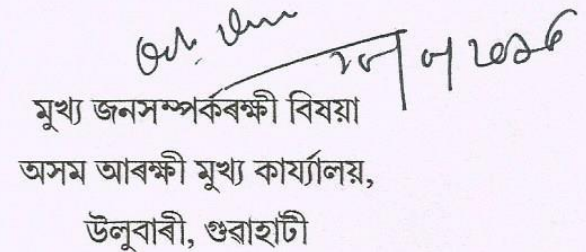 মুখ্য জনসম্পৰ্কৰক্ষী বিষয়া
অসম আৰক্ষী মুখ্য কাৰ্য্যালয়,
উলুবাৰী, গুৱাহাটী